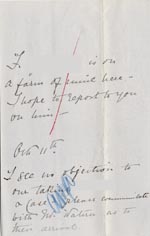 I. is on
a farm of mine here -
I hope to report to you
on him -
Oct 11th.
I see no objection to
our taking
a case communicate
with as to
their